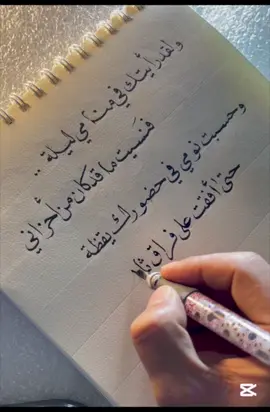 ولقد رأيتك في منامي ليلة ..
فنسيت ما قد كان من أحزاني
وحسبت نومي في حضورك يقظة
حتى أفقت على فراق ثان